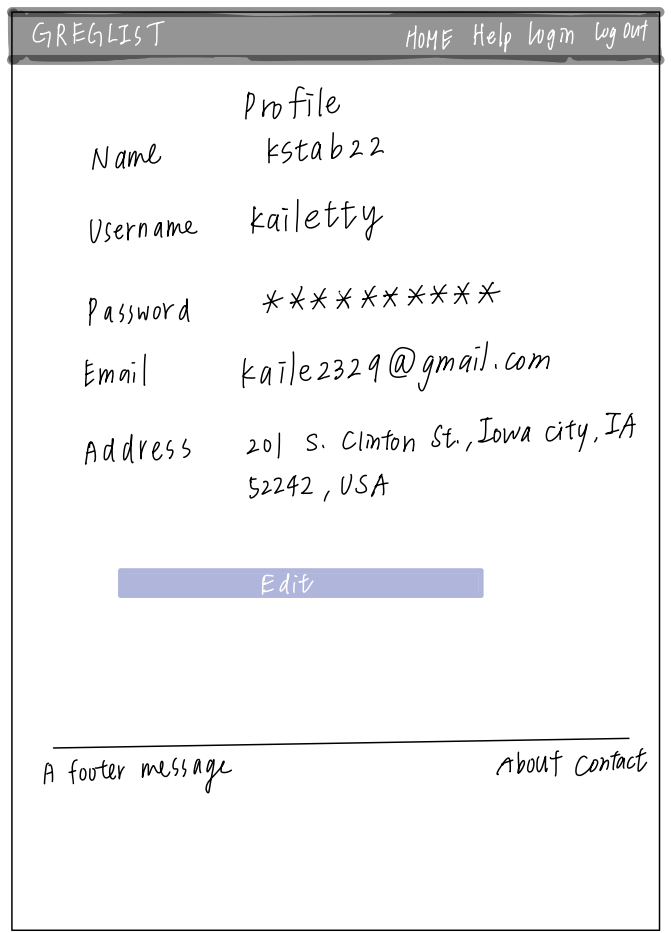 GREGLIST HOME Help login Log Out
Profile
Name kstab22
Username kailetty
Password **********
Email kaile2329@gmail.com
Address 201 S. Clinton St., Iowa city, IA
52242, USA
Edit
A footer message About Contact